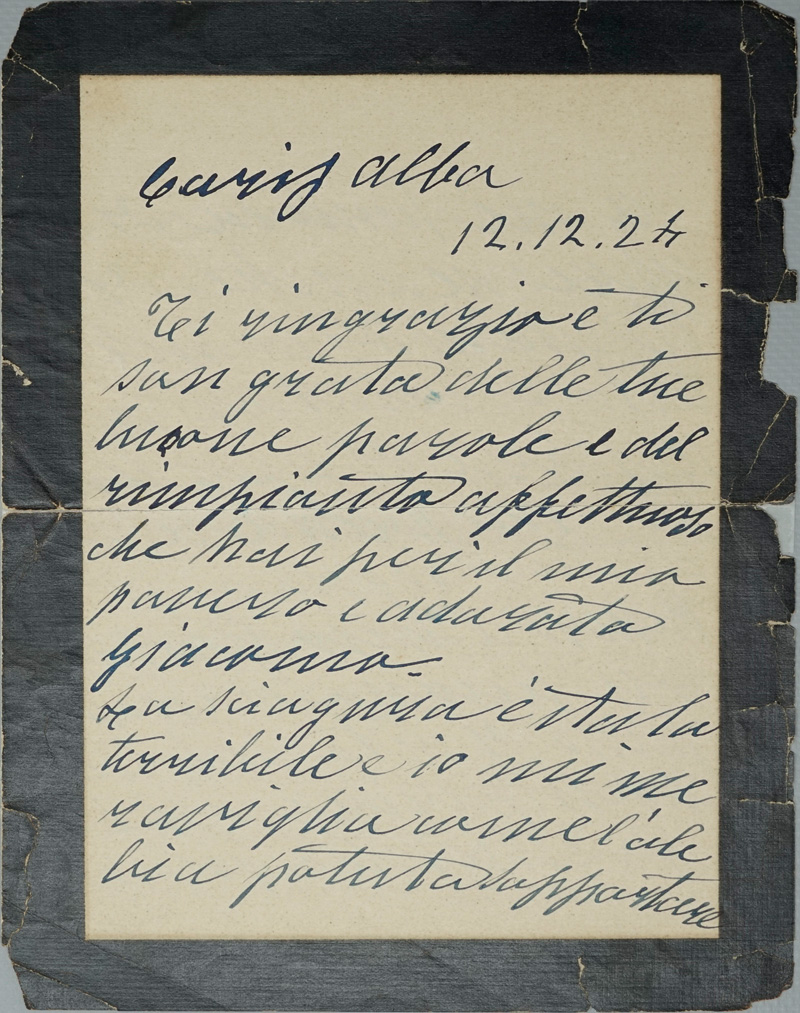 Caris alba
12.12.24
Ti ringrazio e ti
son grata delle tue
buone parole e del
rimpianto affettuoso
che hai per il mio
povero e adorato
Giacomo.
La sciagura è stata
terribile e io mi me
raviglio come l'ab
bia potuta sopportare